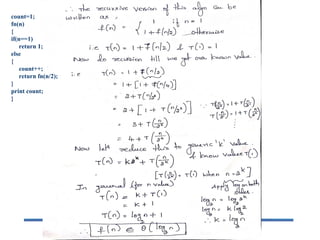 count=1;
fn(n)
{
if(n==1)
return 1;
else
{
count++;
return fn(n/2);
}
print count;
}
∴ The recursive version of this algm can be
written as,
f(n) = { 1 if n = 1
1 + f(n/2) otherwise
i.e T(n) = 1 + T(n/2) & T(1) = 1
Now do recursion till we get our known value.
i.e T(n) = 1 + T(n/2)
= 1 + [1 + T(n/4)]
= 2 + T(n/2²)
= 2 + [1 + T(n/2³)]
= 3 + T(n/2³)
= 4 + T(n/2⁴)
Now let's reduce this to generic 'k' value
T(n) = k + T(n/2ᵏ) if know value T(1)
[T(n/2ᵏ) = T(1) when n = 2ᵏ]
In general (for n value)
T(n) = k + T(1)
= k + 1
T(n) = log₂n + 1
f(n) ∈ Θ(log₂n)
Apply log on both
sides.
log n = log 2ᵏ
log n = k log 2
∴ k = log₂n